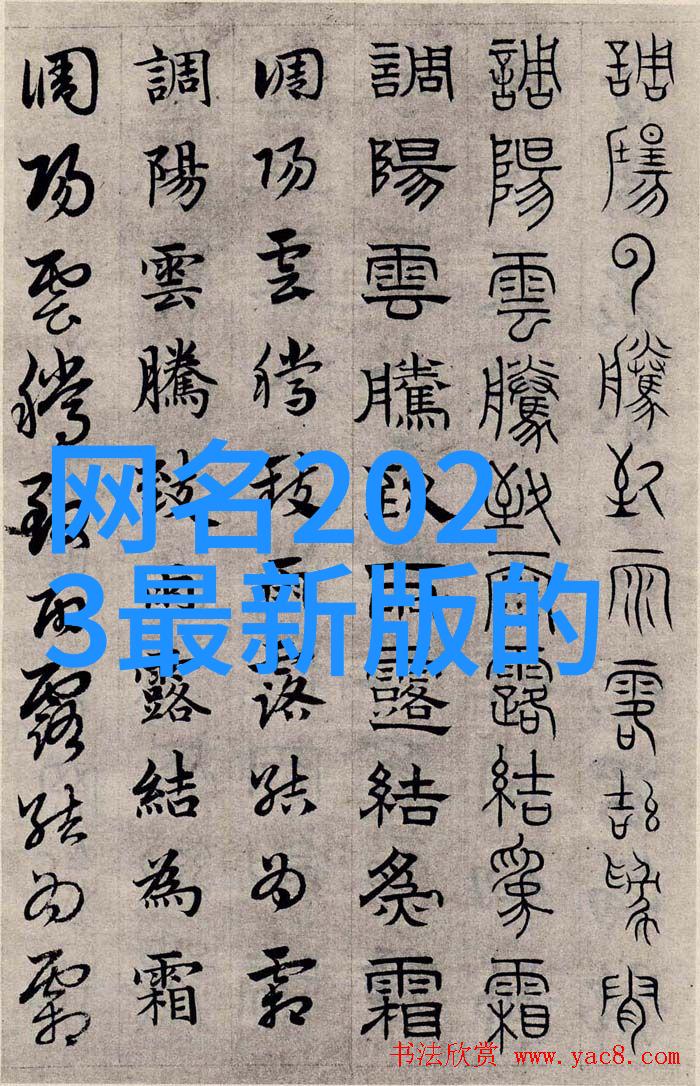 調陽云騰致雨露結為霜
調陽雲騰致雨露結為霜
調陽雲騰致雨露結為霜
調陽雲騰致雨露結為霜
調陽雲騰致雨露結為霜
調陽雲騰致雨露結為霜
网名202
3最新版的
书法欣赏 www.yac8.com